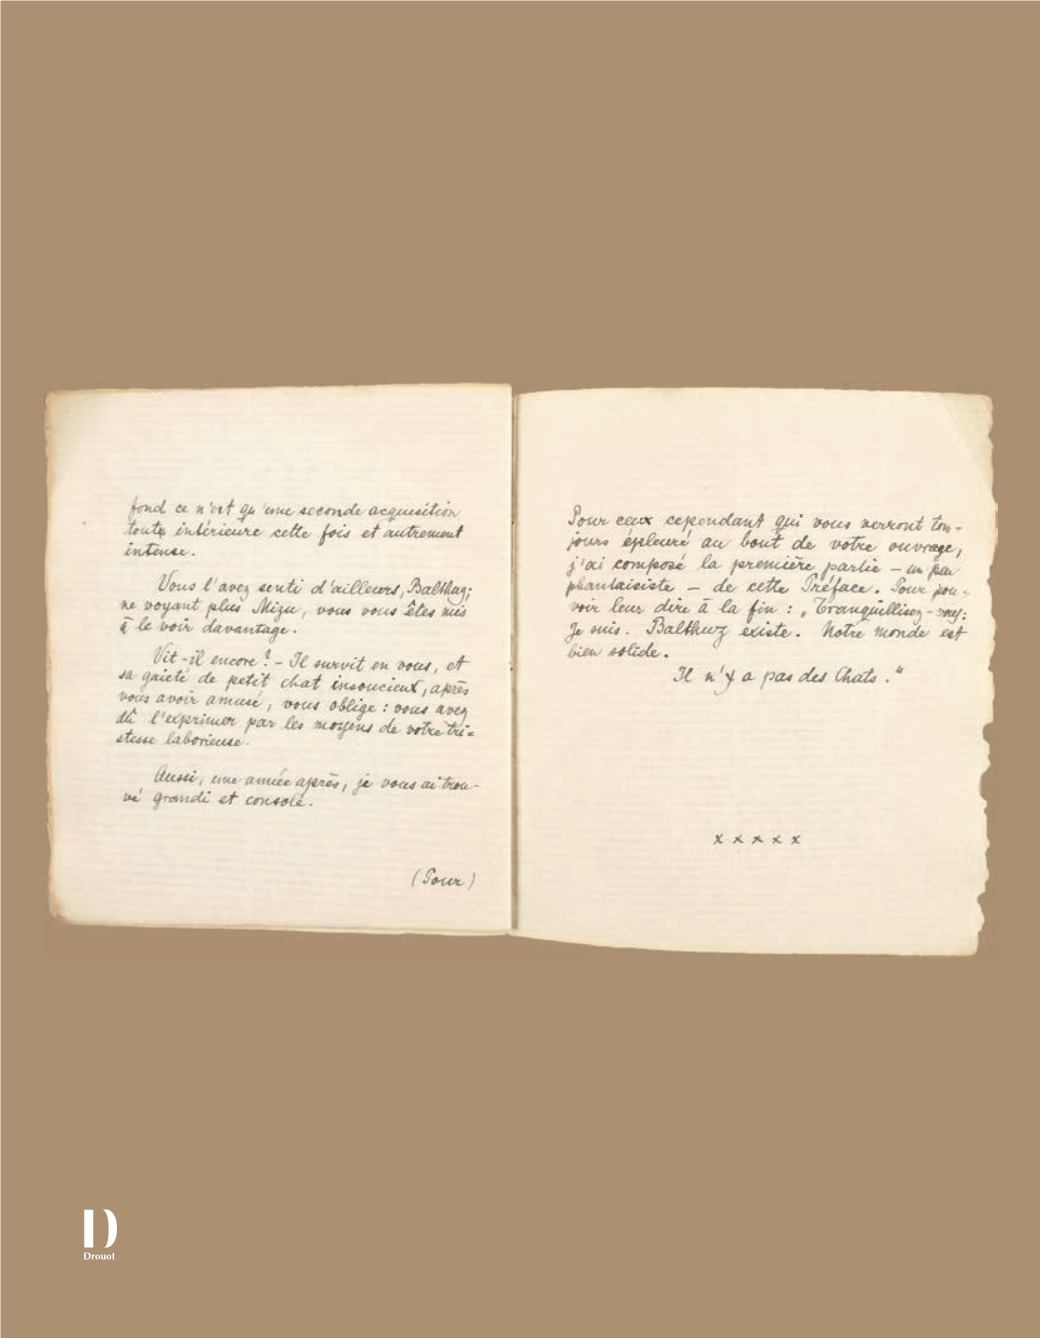 fond ce n'est qu'une seconde acquisition
toute intérieure cette fois et autrement
intense.
Vous l'avez senti d'ailleurs, Balthuz;
ne voyant plus Mizu, vous vous êtes mis
à le voir davantage.
Vit-il encore? - Il survit en vous, et
sa gaieté de petit chat insoucieux, après
vous avoir amusé, vous oblige: vous avez
dû l'exprimer par les moyens de votre tri=
stesse laborieuse.
Aussi, une année après, je vous ai trou-
vé grandi et consolé.
(Pour)
Pour ceux cependant qui vous verront tou-
jours épleuré au bout de votre ouvrage,
j'ai composé la première partie - un peu
phantaisiste - de cette Préface. Pour pou-
voir leur dire à la fin: „Tranquillisez-vous:
Je suis. Balthuz existe. Notre monde est
bien solide.
Il n'y a pas des Chats."
x x x x x
D
Drouot